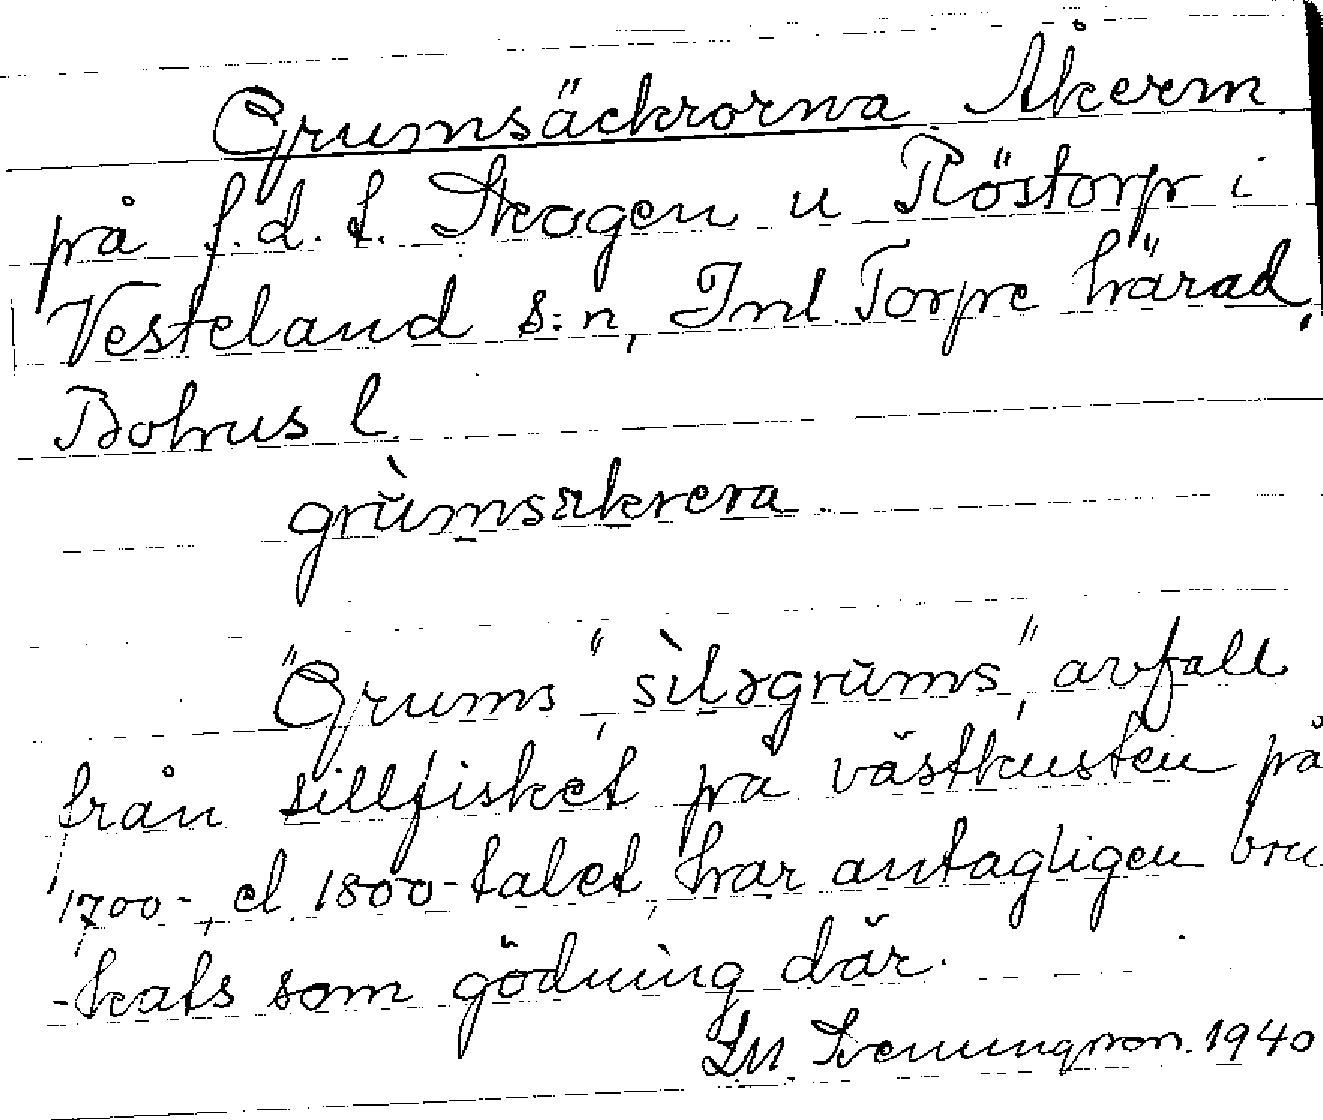 Grumsäckrorna Åkerm.
på f.d. t. Skogen u Röstorp i
Vesteland s:n, Inl Torpe härad,
Bohus l.
grùmsækrera
"Grums", "sìləgrùms", avfall
från sillfisket på västkusten på
1700-, el. 1800-talet, har antagligen bru
-kats som gödning där.
1940